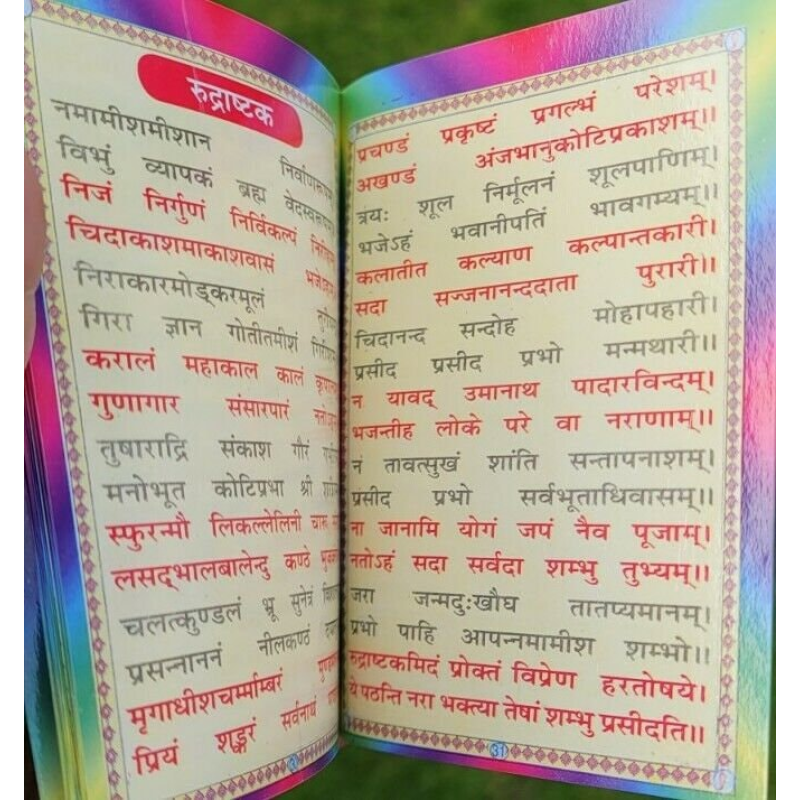 रुद्राष्टक
नमामीशमीशान
विभुं व्यापकं ब्रह्म
निजं निर्गुणं निर्विकल्पं
चिदाकाशमाकाशवासं
निराकारमोड्करमूलं
गिरा ज्ञान गोतीतमीशं
करालं महाकाल कालं
गुणागार संसारपारं
तुषाराद्रि संकाश गौरं
मनोभूत कोटिप्रभा श्री
स्फुरन्मौ लिकल्लेलिनी
लसद्भालबालेन्दु कण्ठे
चलत्कुण्डलं भ्रू सुनेत्रं
प्रसन्नाननं नीलकण्ठं
मृगाधीशचर्म्माम्बरं
प्रियं शङ्करं सर्वनाथं
प्रचण्डं प्रकृष्टं प्रगल्भं परेशम्।
अखण्डं अंजभानुकोटिप्रकाशम्।।
त्रयः शूल निर्मूलनं शूलपाणिम्।
भजेऽहं भवानीपतिं भावगम्यम्।।
कलातीत कल्याण कल्पान्तकारी।
सदा सज्जनानन्ददाता पुरारी।।
चिदानन्द सन्दोह मोहापहारी।
प्रसीद प्रसीद प्रभो मन्मथारी।।
न यावद् उमानाथ पादारविन्दम्।
भजन्तीह लोके परे वा नराणाम्।।
नं तावत्सुखं शांति सन्तापनाशम्।
प्रसीद प्रभो सर्वभूताधिवासम्।।
ना जानामि योगं जपं नैव पूजाम्।
नतोऽहं सदा सर्वदा शम्भु तुभ्यम्।।
जरा जन्मदुःखौघ तातप्यमानम्।
प्रभो पाहि आपन्नमामीश शम्भो।।
रुद्राष्टकमिदं प्रोक्तं विप्रेण हरतोषये।
ये पठन्ति नरा भक्त्या तेषां शम्भु प्रसीदति।।
31